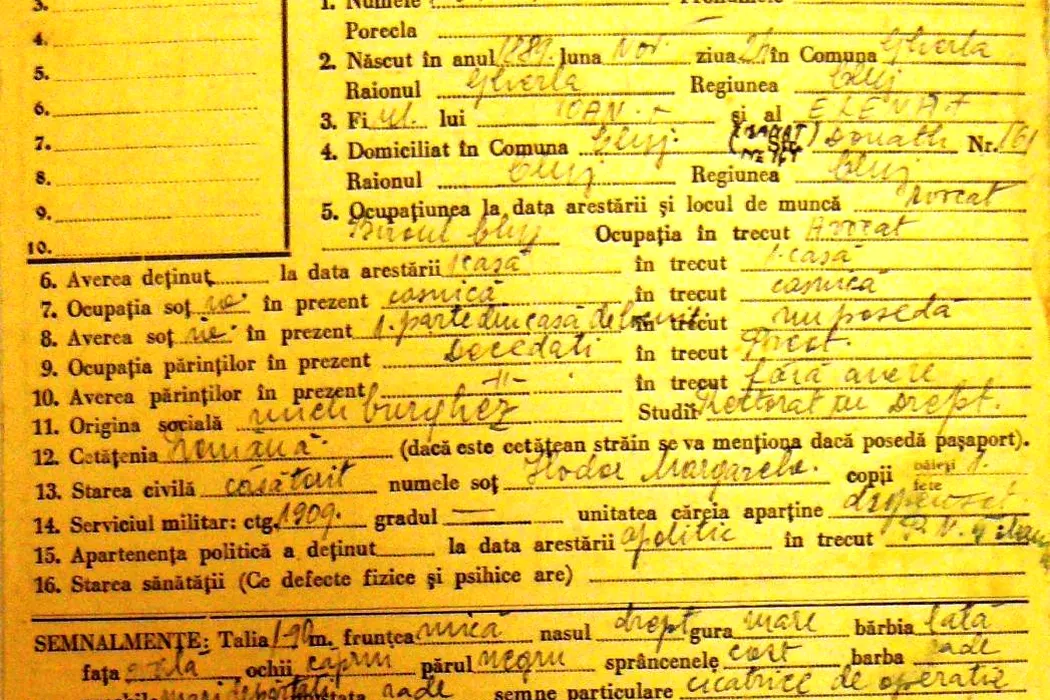 3.
4.
5.
6.
7.
8.
9.
10.
1. Numele
Porecla —
2. Născut în anul 1889. luna Nov. ziua în Comuna Gherla
Raionul Gherla Regiunea Cluj
3. Fi ul. lui IOAN și al
4. Domiciliat în Comuna Cluj. Str. Donath Nr. 161
Raionul Cluj Regiunea Cluj
5. Ocupațiunea la data arestării și locul de muncă Avocat
Biroul Cluj Ocupația în trecut Avocat
6. Averea deținut la data arestării 1 casă în trecut 1. casă
7. Ocupația soț ie în prezent casnică în trecut casnică
8. Averea soț ie în prezent 1. parte din casă de în trecut nu posedă
9. Ocupația părinților în prezent Decedati în trecut
10. Averea părinților în prezent -//- în trecut fără avere
11. Origina socială burghez Studii în Drept.
12. Cetățenia Română. (dacă este cetățean străin se va menționa dacă posedă pașaport).
13. Starea civilă căsătorit numele soț Hodor Margareta. copii băieți
fete
14. Serviciul militar: ctg. 1909. gradul — unitatea căreia aparține dispensat
15. Apartenența politică a deținut la data arestării apolitic în trecut
16. Starea sănătății (Ce defecte fizice și psihice are)
SEMNALMENTE: Talia m. fruntea mică nasul drept gura mare bărbia lată
fața ochii căprui părul negru sprâncenele barba rade
rade semne particulare cicatrice de operatie